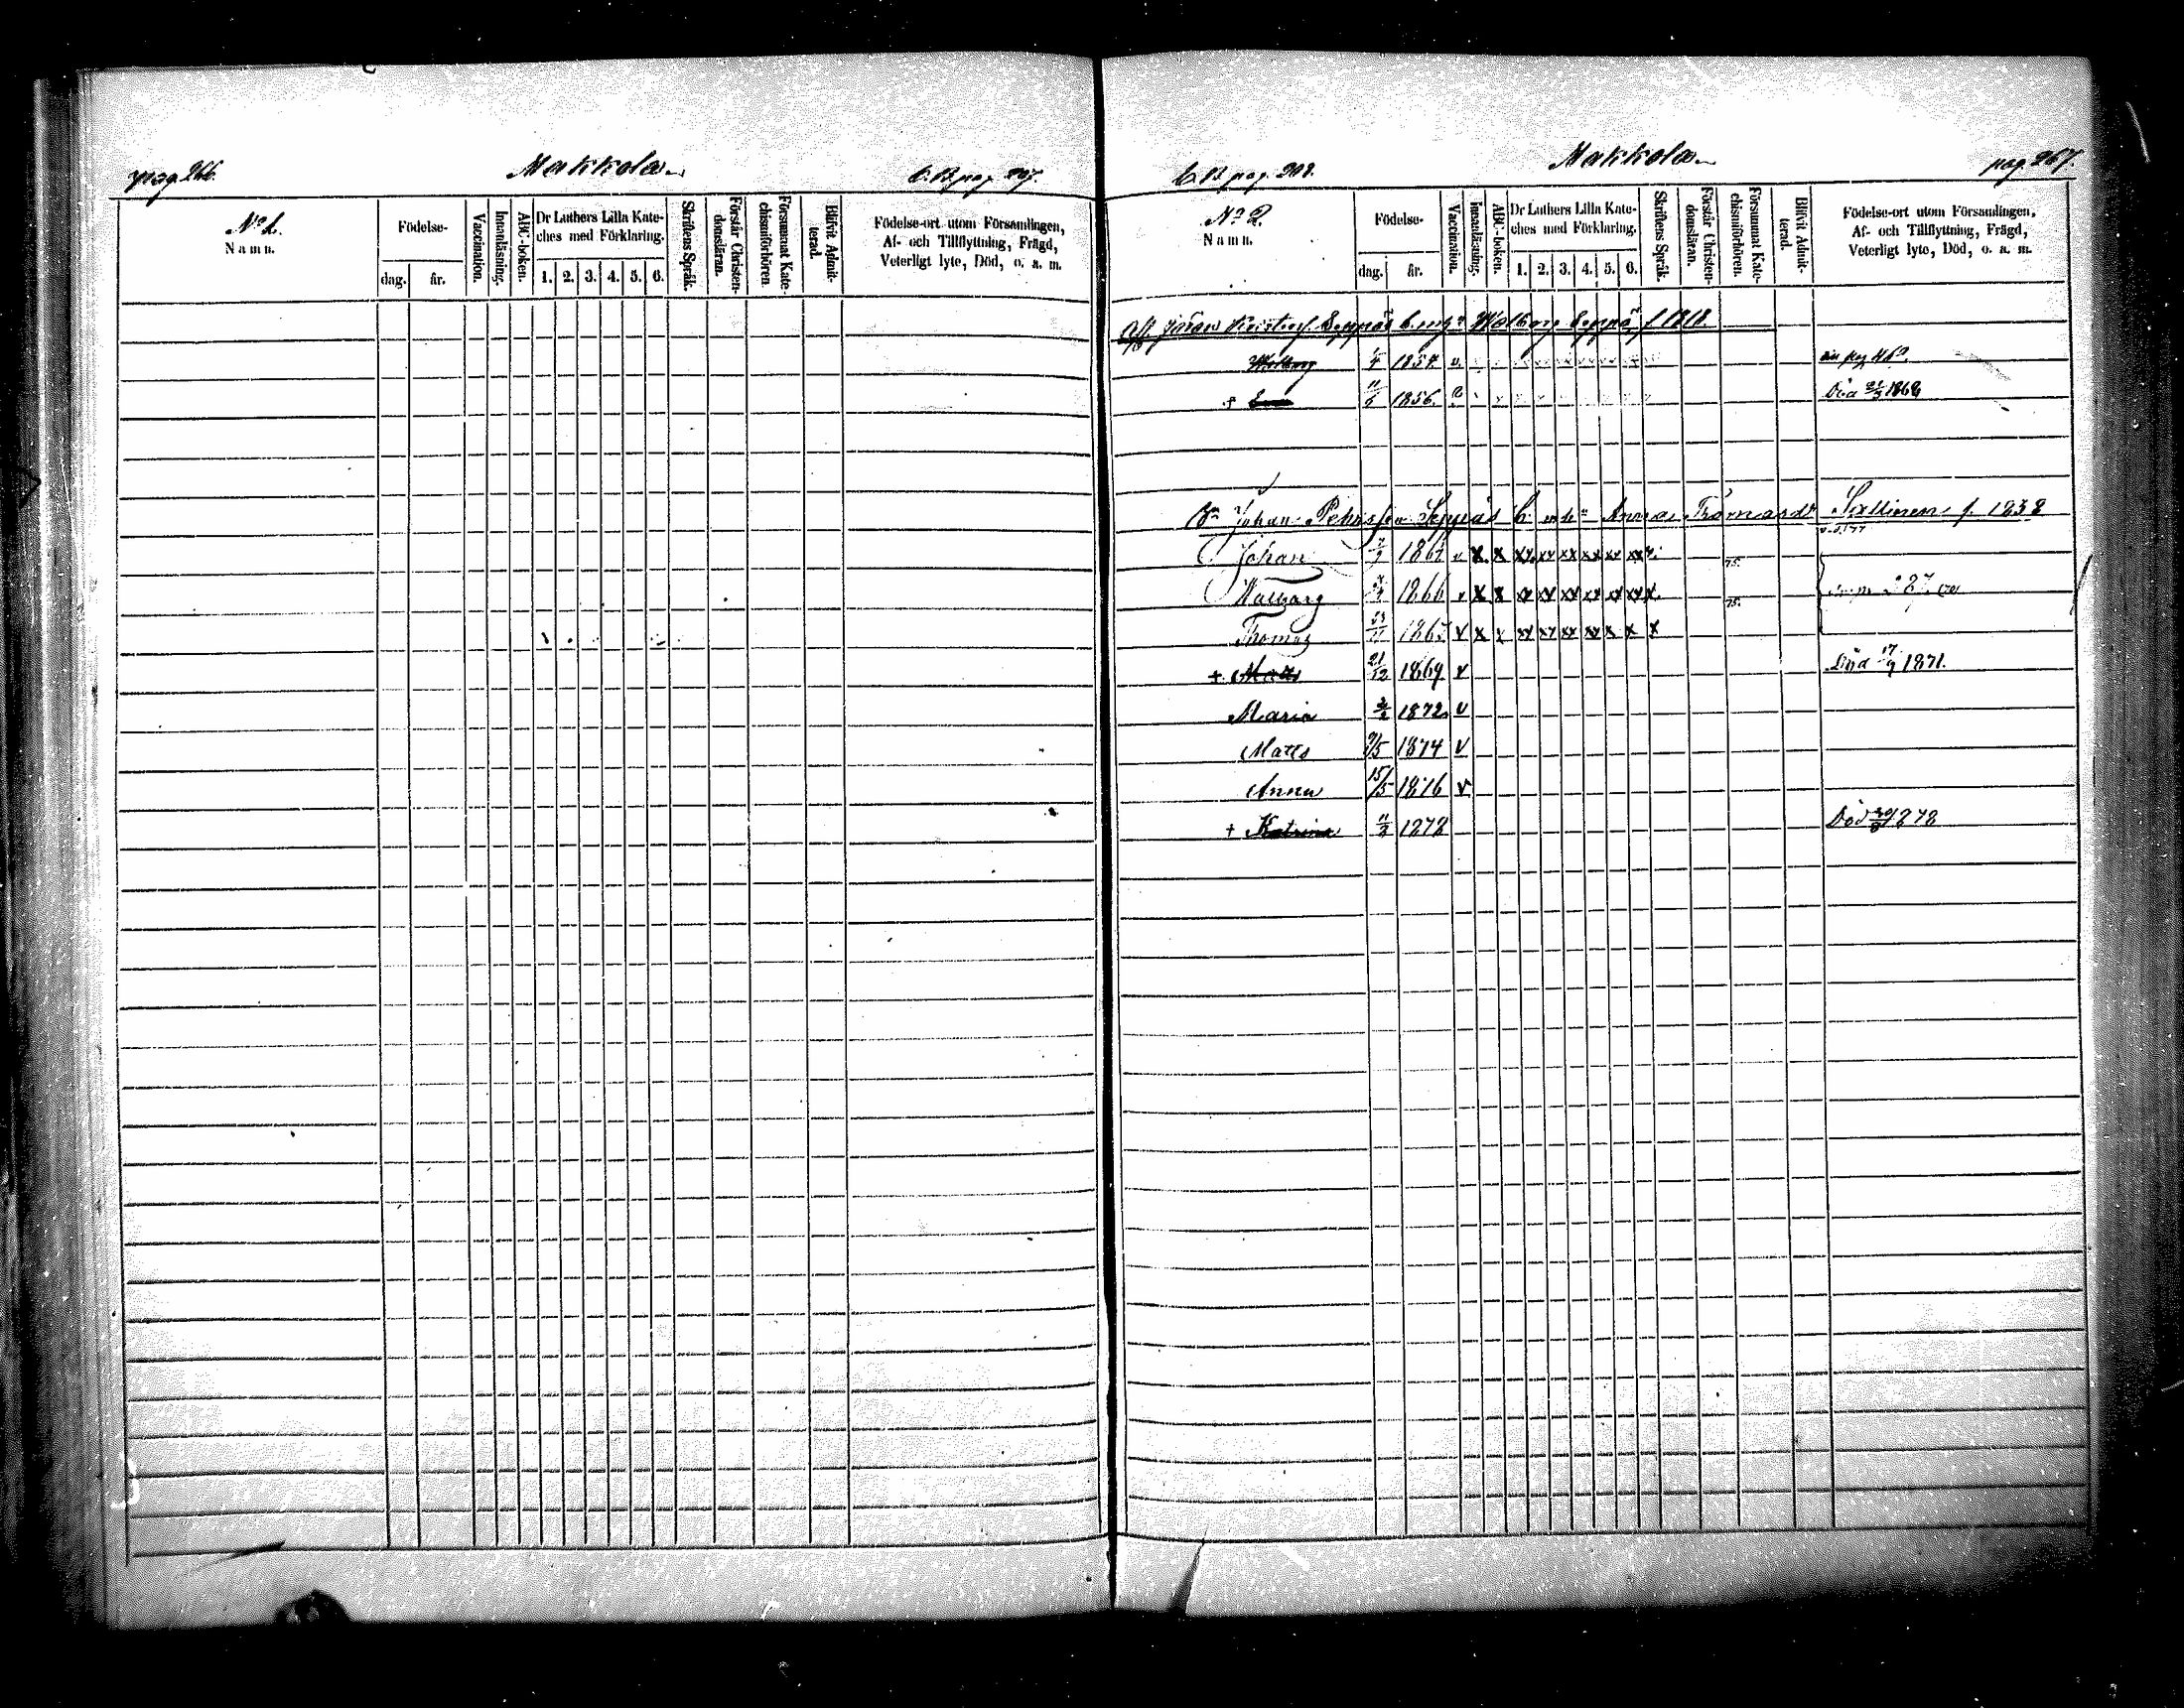 pag. 266.
Makkola
C. B. pag. 207.
No 1.
Namn.
Födelse-
dag.
år.
Vaccination.
Innanläsning.
ABC-boken.
Dr Luthers Lilla Kate-
ches med Förklaring.
1. 2. 3. 4. 5. 6.
Skriftens Språk.
Förstår Christen-
domsläran.
Försummat Kate-
chismiförhören.
Blifvit Admit-
terad.
Födelse-ort utom Församlingen,
Af- och Tillflyttning, Frägd,
Veterligt lyte, Död, o. a. m.
C. B. pag. 208.
Makkola
pag. 267.
No 2.
Namn.
Födelse-
dag.
år.
Vaccination.
Innanläsning.
ABC-boken.
Dr Luthers Lilla Kate-
ches med Förklaring.
1. 2. 3. 4. 5. 6.
Skriftens Språk.
Förstår Christen-
domsläran.
Försummat Kate-
chismiförhören.
Blifvit Admit-
terad.
Födelse-ort utom Församlingen,
Af- och Tillflyttning, Frägd,
Veterligt lyte, Död, o. a. m.
Seppäs Walborg Seppä f. 1818.
Walborg 1854. v.
+ 11/6 1856. Död 1868
Johan Pehrsson Seppäs Anna Thomasdr Sallinen f. 1838
Johan v x x xx xx xx xx xx xx 75.
Walborg 1866 v x x xx xx xx xx xx xx x 75.
Thomas v x x xx xx xx xx x x x
+ Matts 21/12 1869 v Död 17/9 1871.
Maria 1872 v
Matts 9/5 1874 v
Anna 15/5 1876 v
+ Katrina 11/3 1878 Död 1878